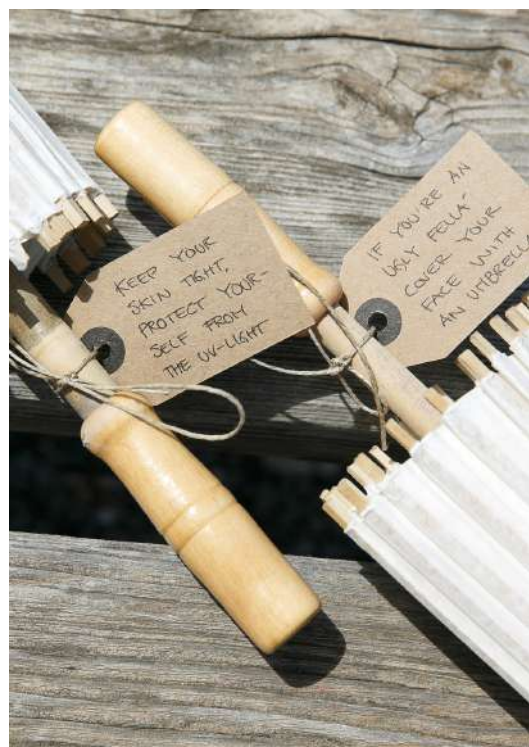 KEEP YOUR
SKIN TIGHT,
PROTECT YOUR-
SELF FROM
THE UV-LIGHT
IF YOU'RE AN
UGLY FELLA-
COVER YOUR
FACE WITH
AN UMBRELLA